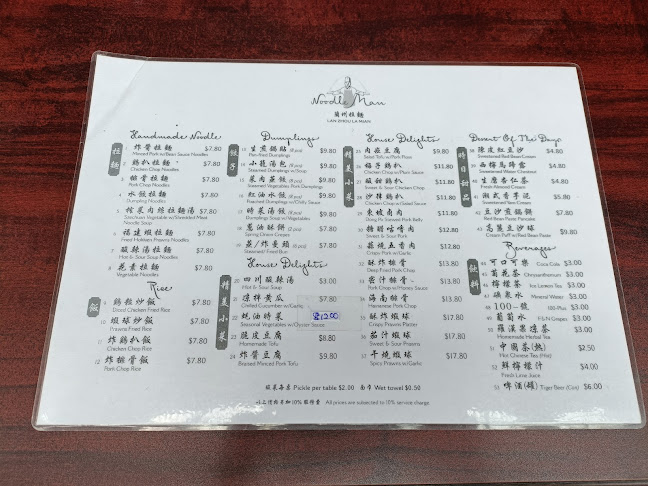 Noodle Man
蘭州拉麵
LAN ZHOU LA MIAN
Handmade Noodle
拉麵
1 炸醬拉麵 $7.80
Minced Pork w/Bean Sauce Noodles
2 鷄扒拉麵 $7.80
Chicken Chop Noodles
3 排骨拉麵 $7.80
Pork Chop Noodles
4 水餃拉麵 $7.80
Dumpling Noodles
5 榨菜肉絲拉麵湯 $7.80
Szechuan Vegetables w/Shredded Meat
Noodle Soup
6 福建蝦拉麵 $7.80
Fried Hokkien Prawns Noodles
7 酸辣湯拉麵 $7.80
Hot & Sour Soup Noodles
8 花素拉麵 $7.80
Vegetable Noodles
Rice
飯
9 鷄粒炒飯 $7.80
Diced Chicken Fried Rice
10 蝦球炒飯 $7.80
Prawns Fried Rice
11 炸鷄扒飯 $7.80
Chicken Chop Rice
12 炸排骨飯 $7.80
Pork Chop Rice
Dumplings
餃子
13 生煎鍋貼 (8 pcs) $9.80
Pan-fried Dumplings
14 小籠湯包 $9.80
Steamed Dumplings w/Soup
15 菜肉蒸餃 $9.80
Steamed Vegetables Pork Dumplings
16 紅油水餃 $9.80
Poached Dumplings w/Chilly Sauce
17 時菜湯餃 $9.80
Dumplings Soup w/Vegetables
18 葱油酥餅 $9.80
Spring Onion Crepes
19 蒸/炸曼頭 $9.80
Steamed / Fried Bun
House Delights
精美小菜
20 四川酸辣湯 $3.00
Hot & Sour Soup
21 凉拌黄瓜 $7.80
Chilled Cucumber w/Garlic
22 蚝油時菜 $12.00
Seasonal Vegetables w/Oyster Sauce
23 脆皮豆腐 $8.80
Homemade Tofu
24 炸醬豆腐 $9.80
Braised Minced Pork Tofu
House Delights
精美小菜
25 肉崧豆腐 $9.80
26 梅子鷄扒 $11.80
Chicken Chop w/Plum Sauce
27 酸甜鷄扒 $11.80
Sweet & Sour Chicken Chop
28 沙律鷄扒 $11.80
29 東坡肉 $9.80
30 糖醋咕嚕肉 $9.80
Sweet & Sour Pork
31 蒜燒五香肉 $9.80
Crispy Pork w/Garlic
32 酥炸排骨 $9.80
Deep Fried Pork Chop
33 密汁排骨 $9.80
Pork Chop w/Honey Sauce
34 海南排骨 $9.80
Hainanese Pork Chop
35 酥炸蝦球 $17.80
Crispy Prawns Platter
36 茄汁蝦球 $17.80
Sweet & Sour Prawns
37 干燒蝦球 $17.80
Spicy Prawns Platter
Dessert Of The Days
時日甜品
38 陳皮紅豆沙 $4.80
Sweetened Red Bean Cream
39 西檸馬蹄露 $4.80
Sweetened Water Chestnut
40 生磨杏仁茶 $4.80
Fresh Almond Cream
41 潮式香芋泥 $5.80
42 豆沙窩鍋餅 $9.80
Red Bean Paste Pancake
43 高麗豆沙球 $9.80
Cream Puff w/Red Bean Paste
Beverages
飲料
44 可口可樂 Coca Cola $3.00
45 菊花茶 Chrysanthemum $3.00
46 檸檬茶 Ice Lemon Tea $3.00
47 礦泉水 Mineral Water $3.00
48 100-號 100-Plus $3.00
49 葡萄水 F&N Grapes $3.00
50 羅漢果凉茶 $3.00
Homemade Herbal Tea
51 中國茶(熱) $2.50
Hot Chinese Tea (Hot)
52 鮮檸檬汁 $4.00
Fresh Lime Juice
53 啤酒(罐) Tiger Beer (Can) $6.00
Pickle per table $2.00 Wet towel $0.50
以上價格另加10%服務費 All prices are subjected to 10% service charge.